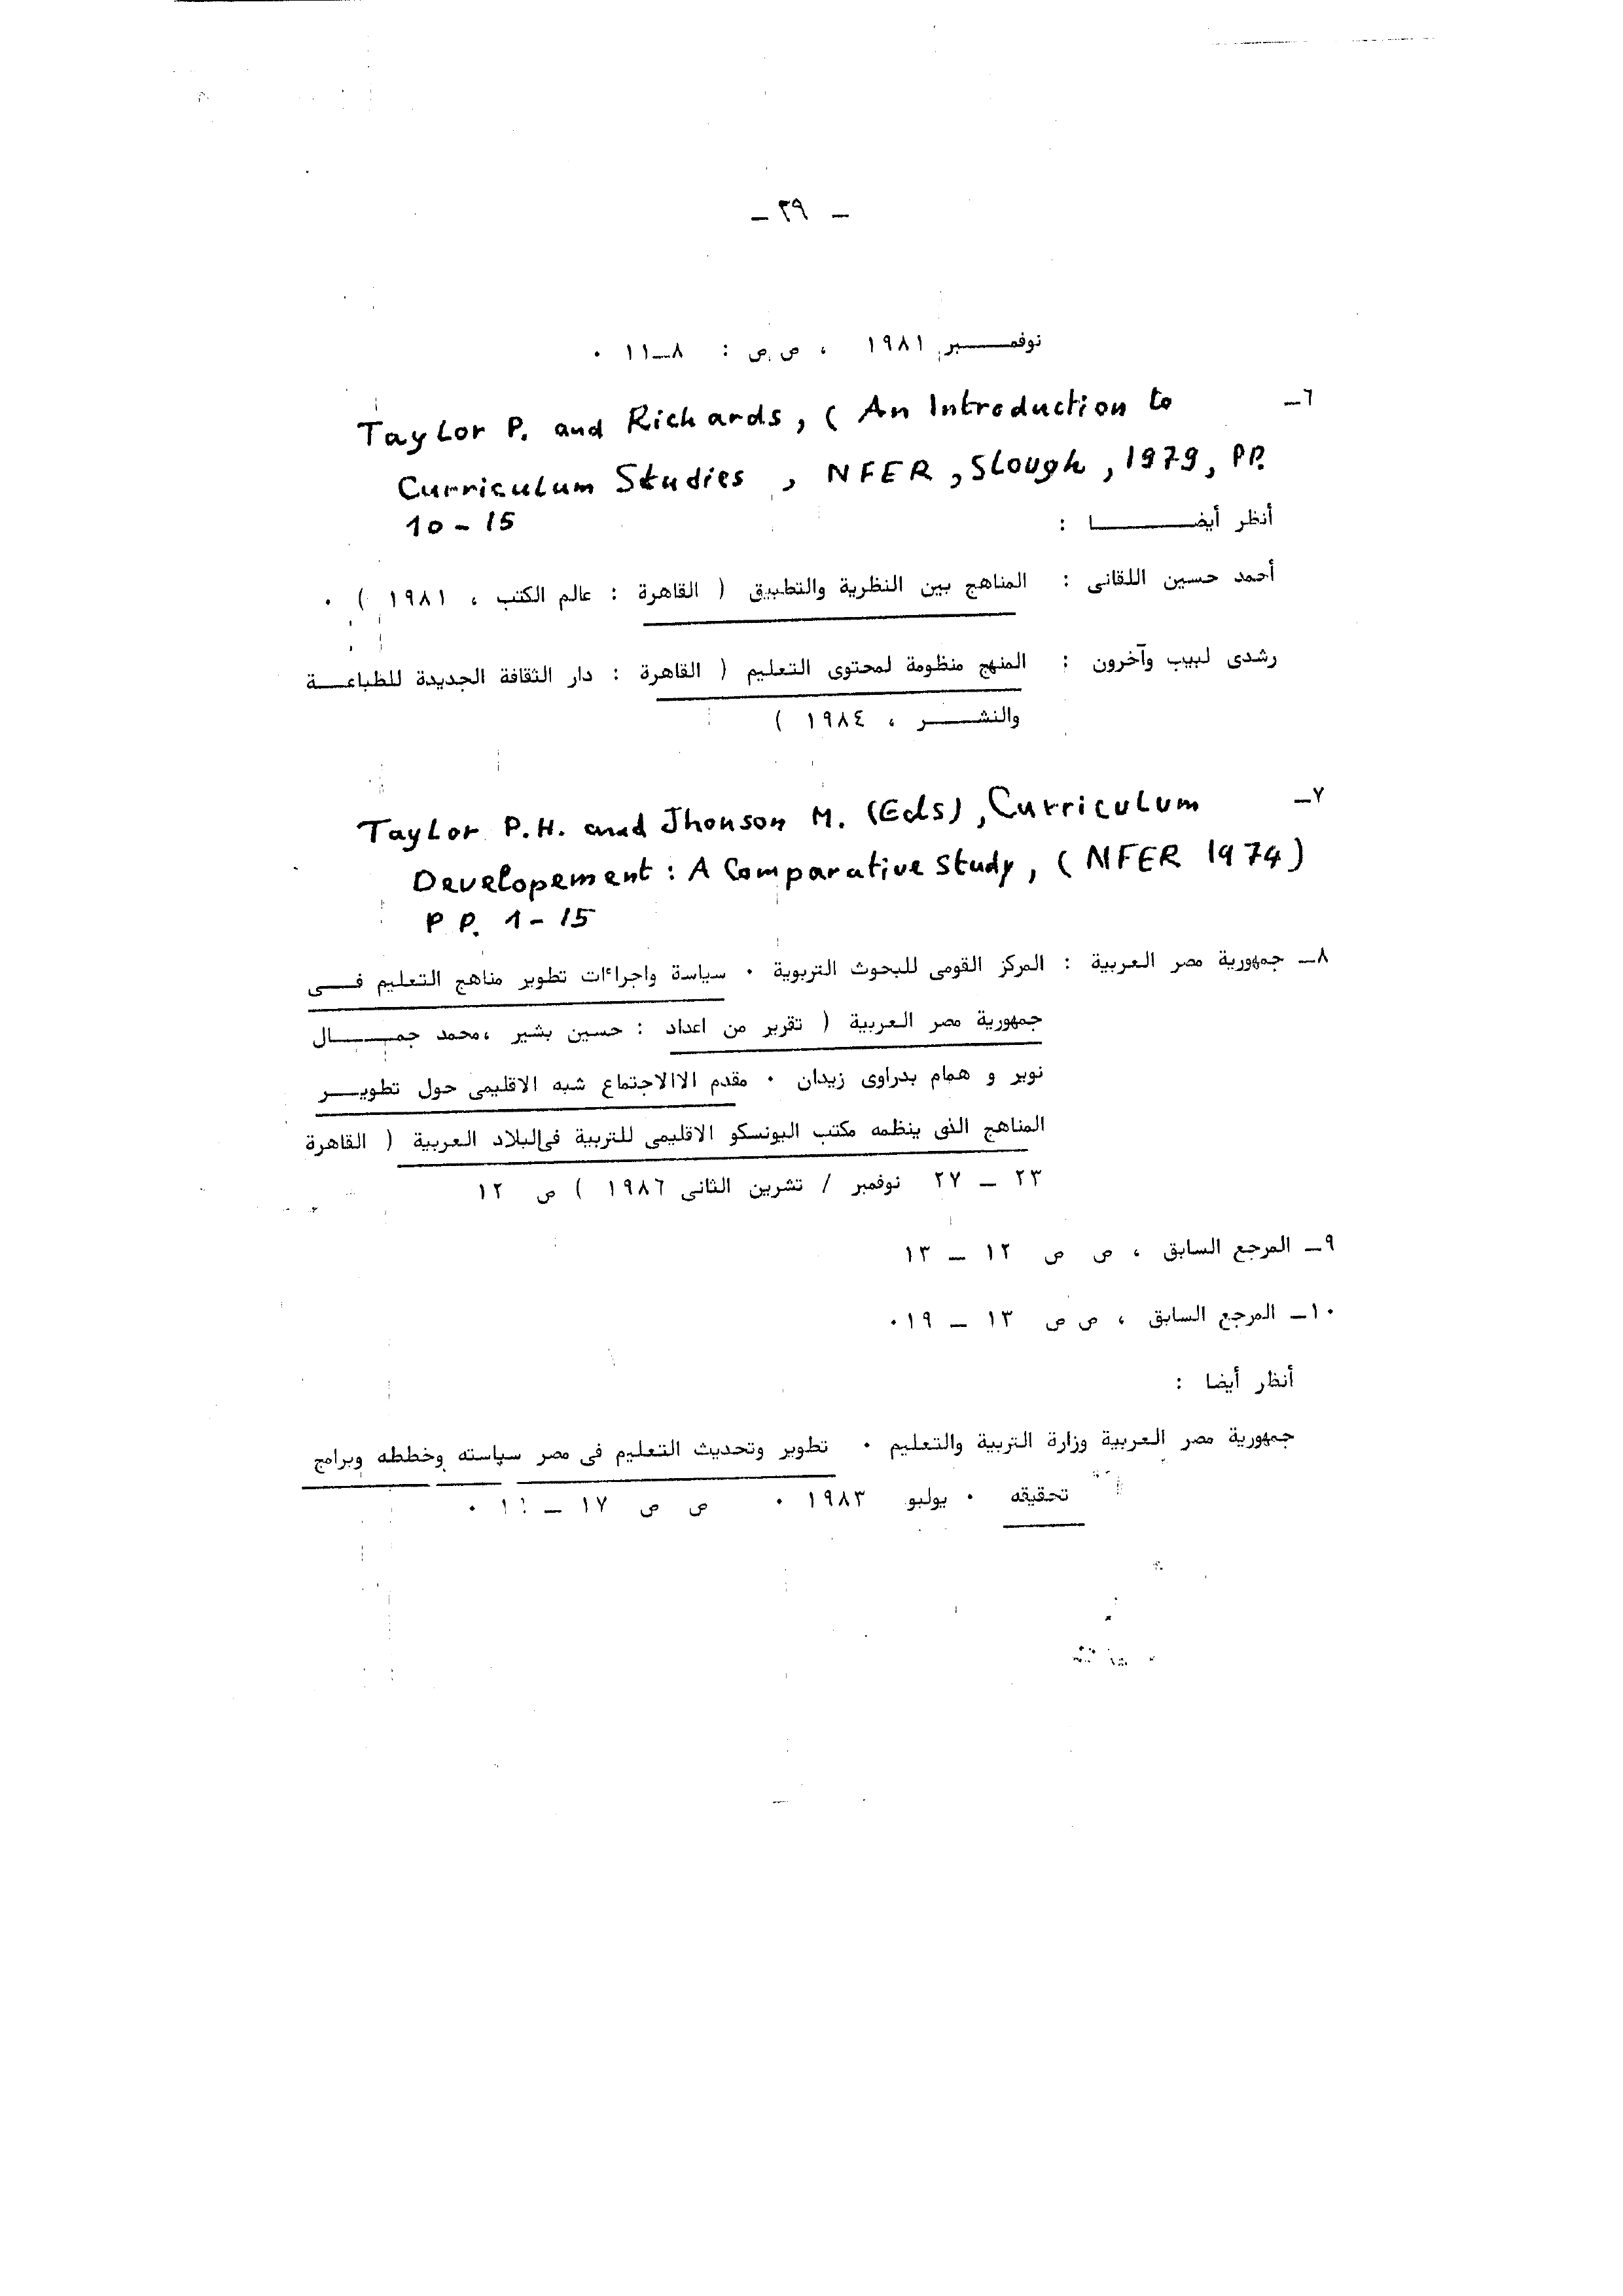 - ٣٩ -
نوفمبر ١٩٨١ ، ص ص : ٨-١١ ٠
٦- Taylor P. and Richards, ( An Introduction to
Curriculum Studies , NFER , Slough , 1979, PP.
10 - 15
أنظر أيضا :
أحمد حسين اللقانى : المناهج بين النظرية والتطبيق ( القاهرة : عالم الكتب ، ١٩٨١ ) ٠
رشدى لبيب وآخرون : المنهج منظومة لمحتوى التعليم ( القاهرة : دار الثقافة الجديدة للطباعة
والنشر ، ١٩٨٤ )
٧- Taylor P.H. and Jhonson M. (Eds), Curriculum
Developement : A Comparative Study, ( NFER 1974 )
P P. 1 - 15
٨- جمهورية مصر العربية : المركز القومى للبحوث التربوية ٠ سياسة واجراءات تطوير مناهج التعليم فى
جمهورية مصر العربية ( تقرير من اعداد : حسين بشير ،محمد جمال
نوير و همام بدراوى زيدان ٠ مقدم الاالاجتماع شبه الاقليمى حول تطوير
المناهج الذى ينظمه مكتب اليونسكو الاقليمى للتربية فىالبلاد العربية ( القاهرة
٢٣ - ٢٧ نوفمبر / تشرين الثانى ١٩٨٦ ) ص ١٢
٩- المرجع السابق ، ص ص ١٢ - ١٣
١٠- المرجع السابق ، ص ص ١٣ - ١٩ ٠
أنظر أيضا :
جمهورية مصر العربية وزارة التربية والتعليم ٠ تطوير وتحديث التعليم فى مصر سياسته وخططه وبرامج
تحقيقه ٠ يوليو ١٩٨٣ ٠ ص ص ١٧ -